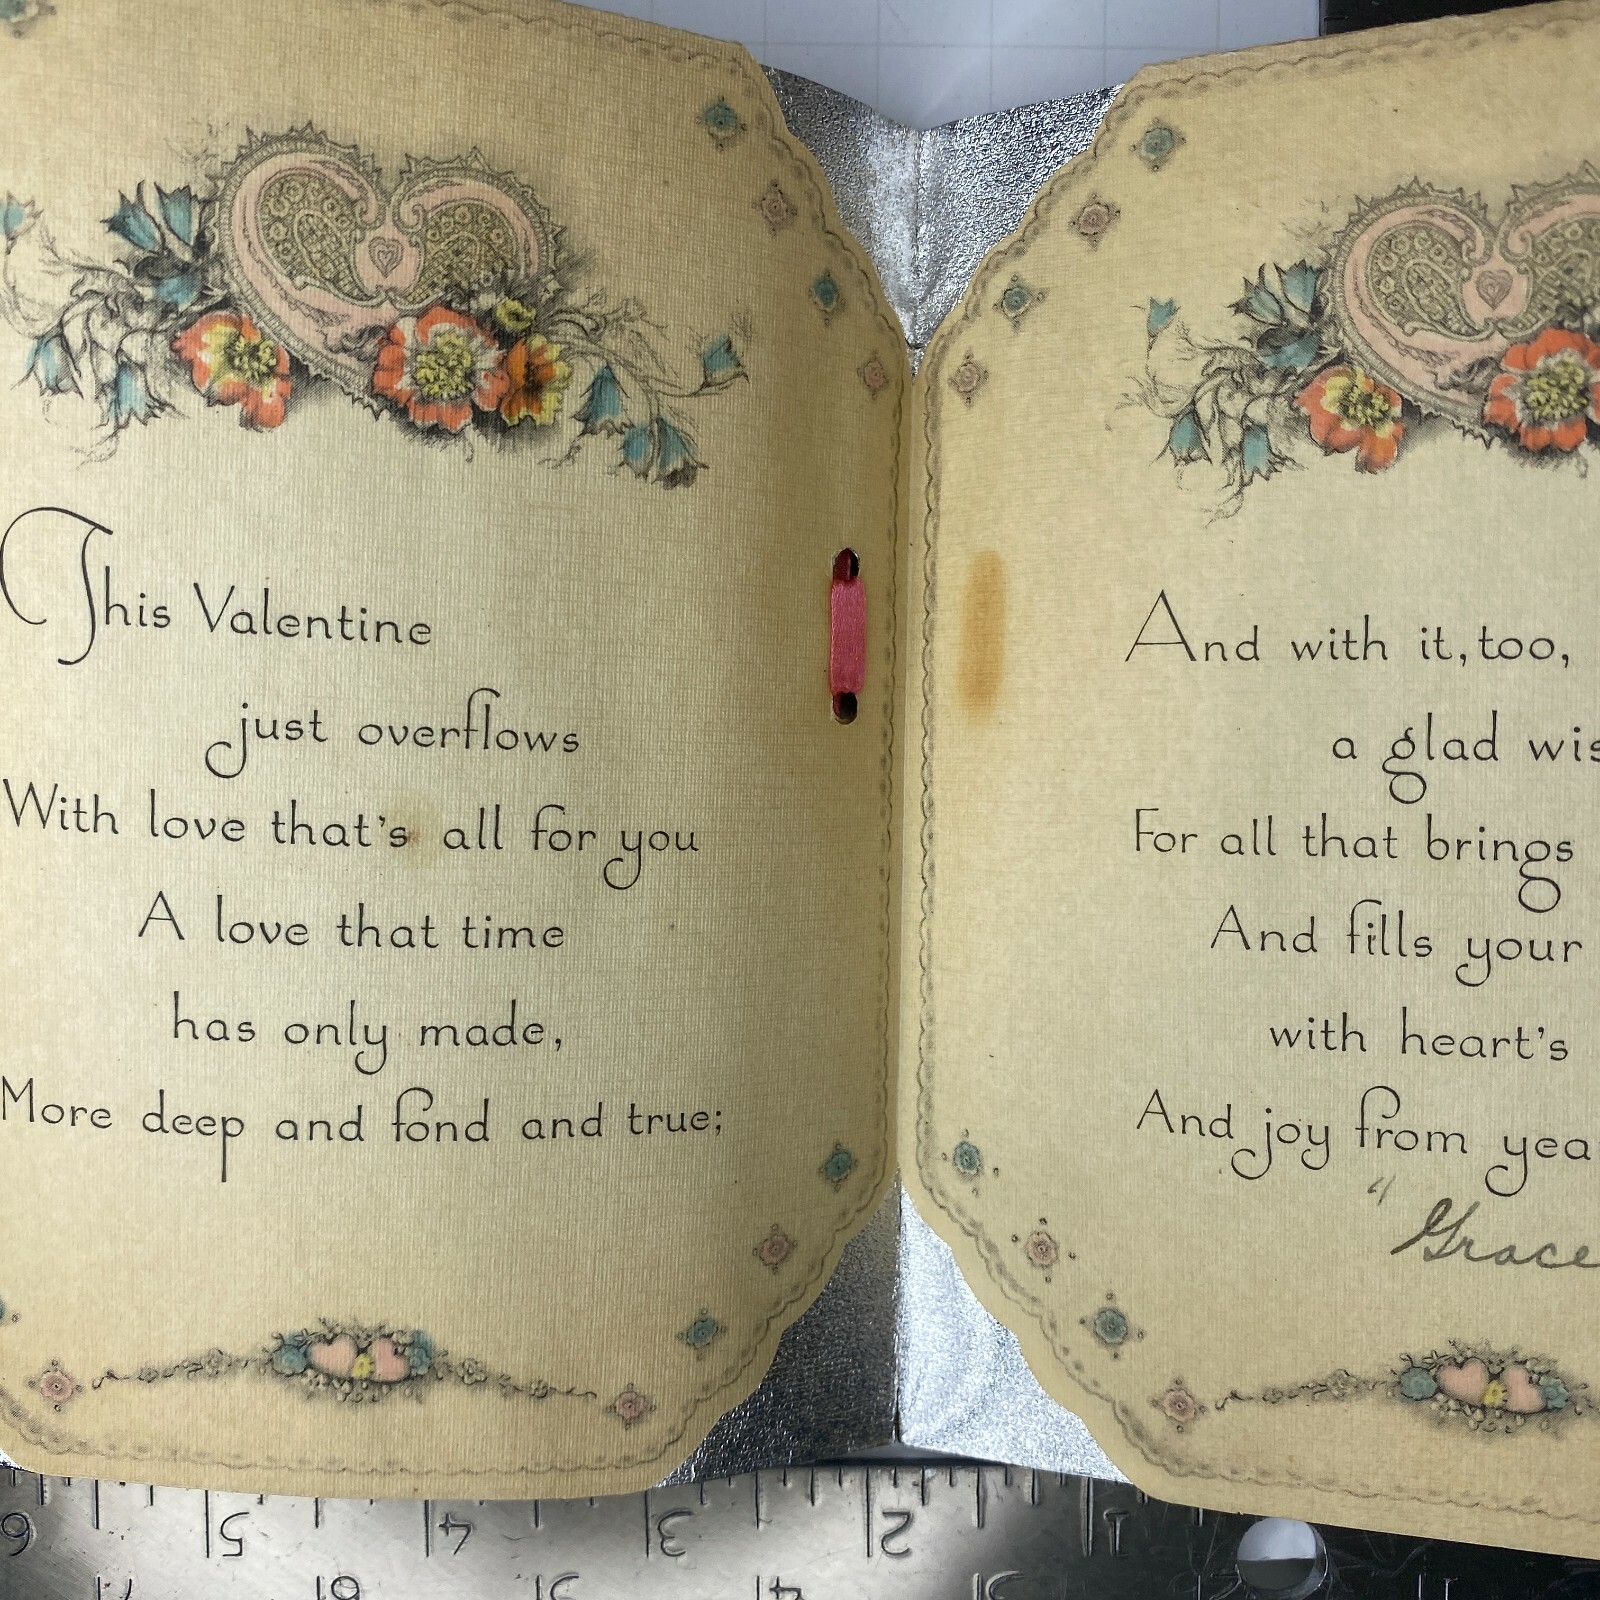 This Valentine
just overflows
With love that's all for you
A love that time
has only made,
More deep and fond and true;
And with it, too,
a glad
For all that brings
And fills your
with heart's
And joy from
" Grace
6 5 4 3 2 1